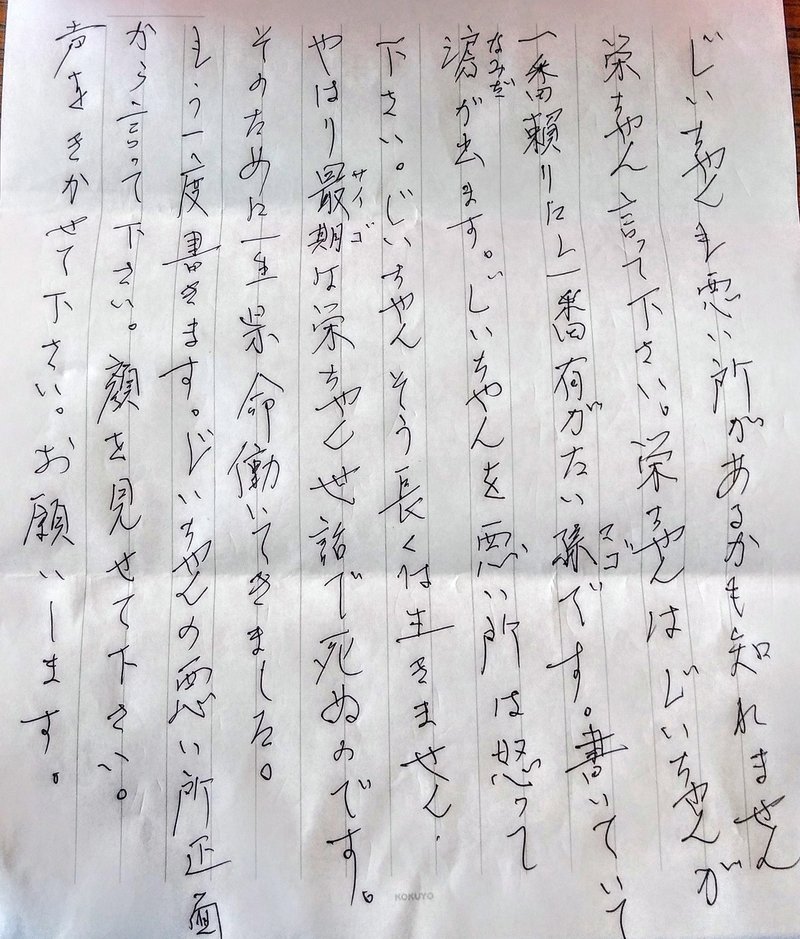 じいちゃんも悪い所があるかも知れません
栄ちゃん言って下さい。栄ちゃんはじいちゃんが
一番頼りにし一番有がたい孫です。書いていて
マゴ
涙が出ます。じいちゃんを悪い所は怒って
なみだ
下さい。じいちゃんそう長くは生きません.
やはり最期は栄ちゃんせ話で死ぬのです。
サイゴ
そのために一生県命働いてきました。
もう一度書きます。じいちゃんの悪い所正面
から言って下さい。顔を見せて下さい。
声をきかせて下さい。お願いします。
KOKUYO